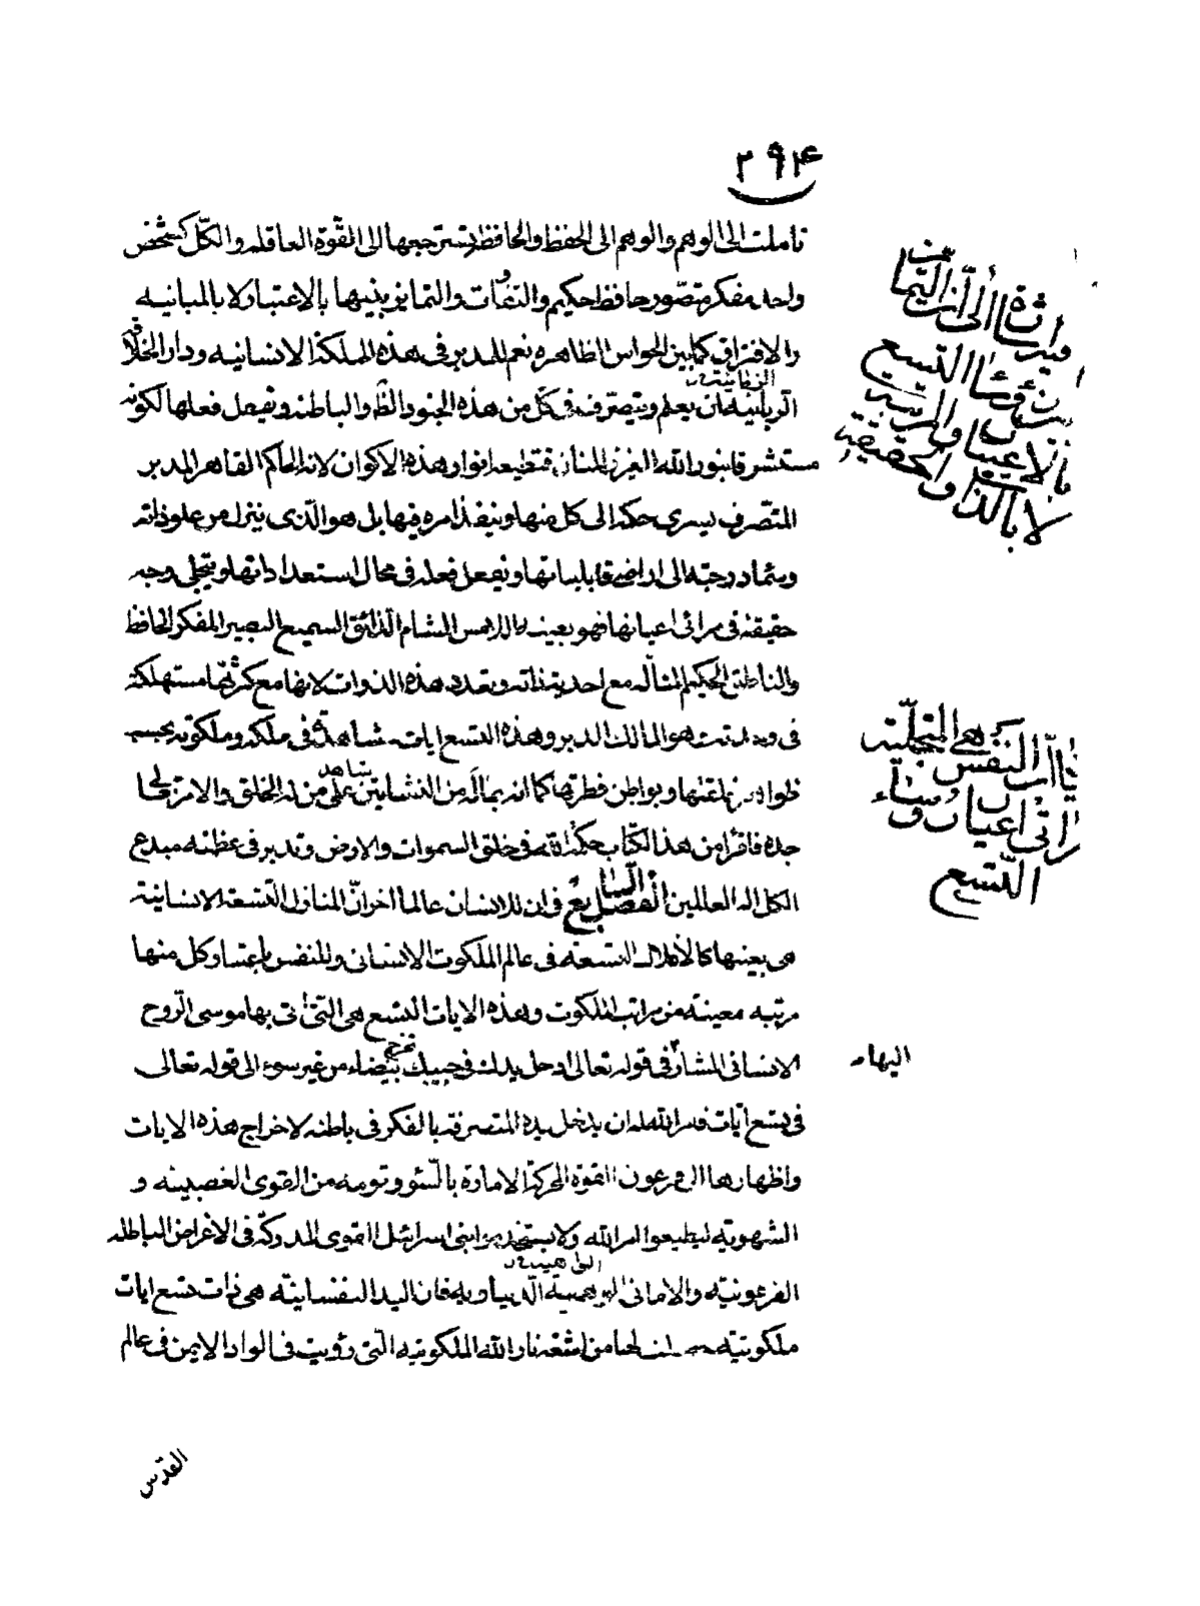 ٢٩٤
تاملت الى الوهم والوهم الى الحفظ والحافظ يسترجعها الى القوة العاقله والكّل كشخص
واحد مفكر متصّور حافظ حكيم والتفاوت والتمايز بينها بالاعتبار لا بالمباينه
والافتراق كما بين الحواس الظاهره نعم للمدبر فى هذه المملكة الانسانيه ودار الخلافة
الربانيه ان يعلم ويتصرف فى كل من هذه الجنود الظ والباطنه ويفعل فعلها لكونه
مستشرقا بنور الله العزيز المنان فتطيعه انوار هذه الاكوان لانه الحاكم القاهر المدبر
المتصّرف يسرى حكمه الى كل منها وينفذ امره فيها بل هو الّذى ينزل من علو ذاته
وسماء درجته الى اراضى قابلياتها ويفعل فعله فى محال استعداداتها ويتجلى وجه
حقيقته فى مرائى اعيانها فهو بعينه اللامس الشام الذائق السميع البصير المفكر الحافظ
والناطق الحكيم المتاله مع احدية ذاته وتعدد هذه الذوات لانها مع كثرتها مستهلكة
فى وحدته هو المالك المدبر وهذه التسع ايات مشاهدة فى ملكه وملكوته بحسب
ظواهر خلقتها وبواطن فطرتها كما انه بماله من النشاتين على من له الخلق والامر تعالى
جده فاقرا من هذا الكتاب حكمة الله فى خلق السموات والارض وتدبر فى عظمة مبدع
الكل اله العالمين الفصل السابع فى ان للانسان عالما اخر انّ المنازل التسعة الانسانية
هى بعينها كالافلاك التسعه فى عالم الملكوت الانسانى وللنفس باعتبار كل منها
مرتبه معينة من مراتب الملكوت وهذه الايات التسع هى التى اتى بها موسى الرّوح
الانسانى المشار فى قوله تعالى ادخل يدك فى جيبك تخرج بيضاء من غير سوء الى قوله تعالى
فى تسع آيات فامر الله له ان يدخل يده المتصرفه بالفكر فى باطنه لاخراج هذه الايات
واظهارها الى فرعون القوة المحركة الامارة بالسّوء وقومه من القوى الغضبيه و
الشهويه ليطيعوا امر الله ولا يستخدموا بنى اسرائيل القوى المدركة فى الاغراض الباطله
الفرعونيّه والامانى الوهمية الّدنياويه فان اليد النفسانيّه هى ذات تسع ايات
ملكوتيّه من اشعّة نار الله الملكوتيه التّى رؤيت فى الواد الايمن فى عالم
القدس
اشارة الى أنّ التمايز
بين قوسنا التسع
بالاعتبار والمرتبة
لا بالذات والحقيقة
النفس هى المتجلّية
اعيان
التّسع
اليها